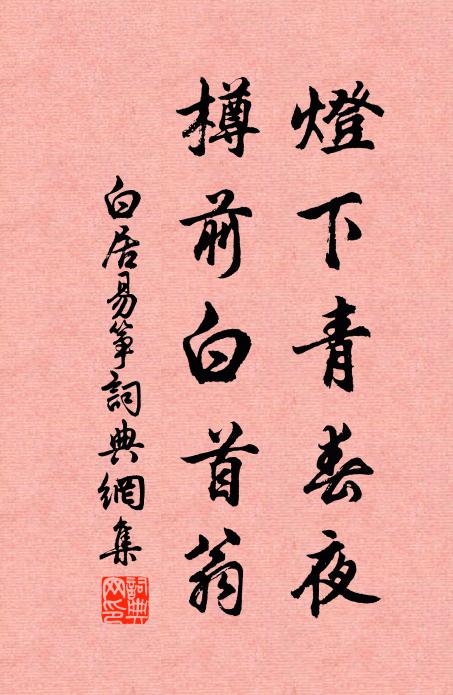 燈下青春夜
樽前白首翁
白居易箏詞典網集
詞典网印